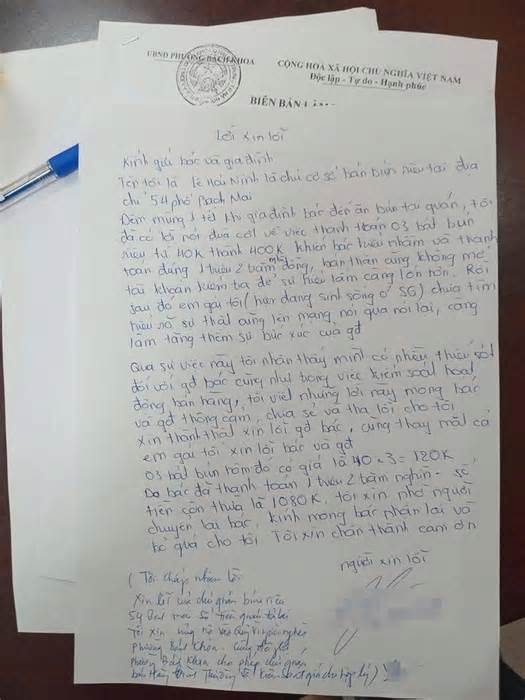 UBND PHƯỜNG BÁCH KHOA
CỘNG HOÀ XÃ HỘI CHỦ NGHĨA VIỆT NAM
Độc lập - Tự do - Hạnh phúc
BIÊN BẢN
Lời xin lỗi
Kính gửi bác và gia đình
Tên tôi là Lê Hải Ninh là chủ cơ sở bán bún riêu tại địa
chỉ 54 phố Bạch Mai
Đêm mùng 1 tết khi gia đình bác đến ăn bún tại quán, tôi
đã có lời nói đùa cợt về việc thanh toán 03 bát bún
riêu từ 40K thành 400K khiến bác hiểu nhầm và thanh
toán đúng 1 triệu 2 trăm đồng, bản thân cũng không mở
tài khoản kiểm tra để sự hiểu lầm càng lớn hơn. Rồi
sau đó em gái tôi (hiện đang sinh sống ở SG) chưa tìm
hiểu rõ sự thật cũng lên mạng nói qua nói lại, càng
làm tăng thêm sự bức xúc của gđ
Qua sự việc này tôi nhận thấy mình có nhiều thiếu sót
đối với gđ bác cũng như trong việc kiểm soát hoạt
động bán hàng, tôi viết những lời này mong bác
và gđ thông cảm, chia sẻ và tha lỗi cho tôi
Xin thành thật xin lỗi gđ bác, cũng thay mặt cả
em gái tôi xin lỗi bác và gđ
03 bát bún hôm đó có giá là 40 . 3 = 120K
Do bác đã thanh toán 1 triệu 2 trăm nghìn - số
tiền còn thừa là 1080K. tôi xin nhờ người
chuyển lại bác, kính mong bác nhận lại và
bỏ qua cho tôi. Tôi xin chân thành cảm ơn
người xin lỗi
( Tôi chấp nhận lời
xin lỗi của chủ quán bún riêu
54 Bạch Mai số tiền quán trả lại
Tôi xin ủng hộ vào Quỹ Vì người nghèo
phường Bách Khoa.
phường Bách Khoa cho phép chủ quán
bán hàng bình thường và kiểm soát giá cho hợp lý )